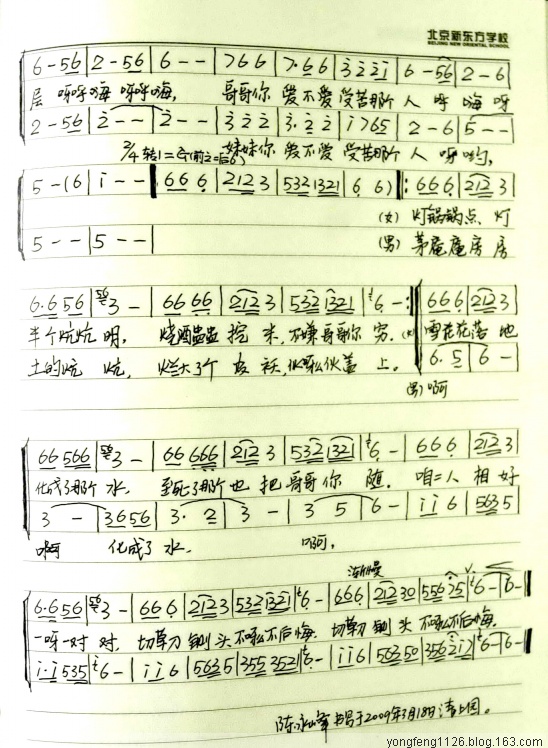 北京新东方学校
BEIJING NEW ORIENTAL SCHOOL
6 - 56 | 2 - 56 | 6 - - | 766 | 7·66 | 3221 | 6 - 56 | 2 - 6
层 呀呼嗨 呀呼嗨, 哥哥你 爱不爱 受苦那个 人 呼嗨 呀
2 - 56 | 2 - - | 2 - - | 322 | 3·22 | 1765 | 2 - 6 | 5 - -
妹妹你 爱不爱 受苦那个 人 呀哟,
2/4 转1=
5 - (6 | i - - | 666 | 2123 | 5321321 | 6 6) |: 666 | 2123
(女) 灯锅锅点 灯
5 - - | 5 - - |
(男) 茅庵庵房 房
6·656 | 3 - | 6666 | 2123 | 532321 | 6 - :| 666 | 2123
半个炕炕 明, 烧酒盅盅 挖 米, 不嫌哥哥你 穷. 雪花花落 地
6·5 | 6 -
土的炕 炕, 烂大了个 皮 袄, 伙呀么伙盖 上。
(男) 啊
66566 | 3 - | 66666 | 2123 | 532321 | 6 - | 666 | 2123
化成了那个 水, 至死了那个也 把哥哥你 随, 咱二人 相 好
3 - | 3656 | 3·2 | 3 - | 3 5 | 6 - | i i 6 | 5635
啊 化成了 水, 啊,
渐慢
6·656 | 3 - | 666 | 2123 | 532321 | 6 - | 666 | 21230 | 55625 | 6 - | 6 -
一呀一对 对, 切草刀 铡 头 不呀么不后悔, 切草刀 铡 头 不呀么不后悔。
i·i535 | 6 - | i i 6 | 5635 | 3553521 | 6 - | i i 6 | 56350 | 356212 | 6 - | 6 -
于2009年3月18日清上园。
yongfeng1126.blog.163.com